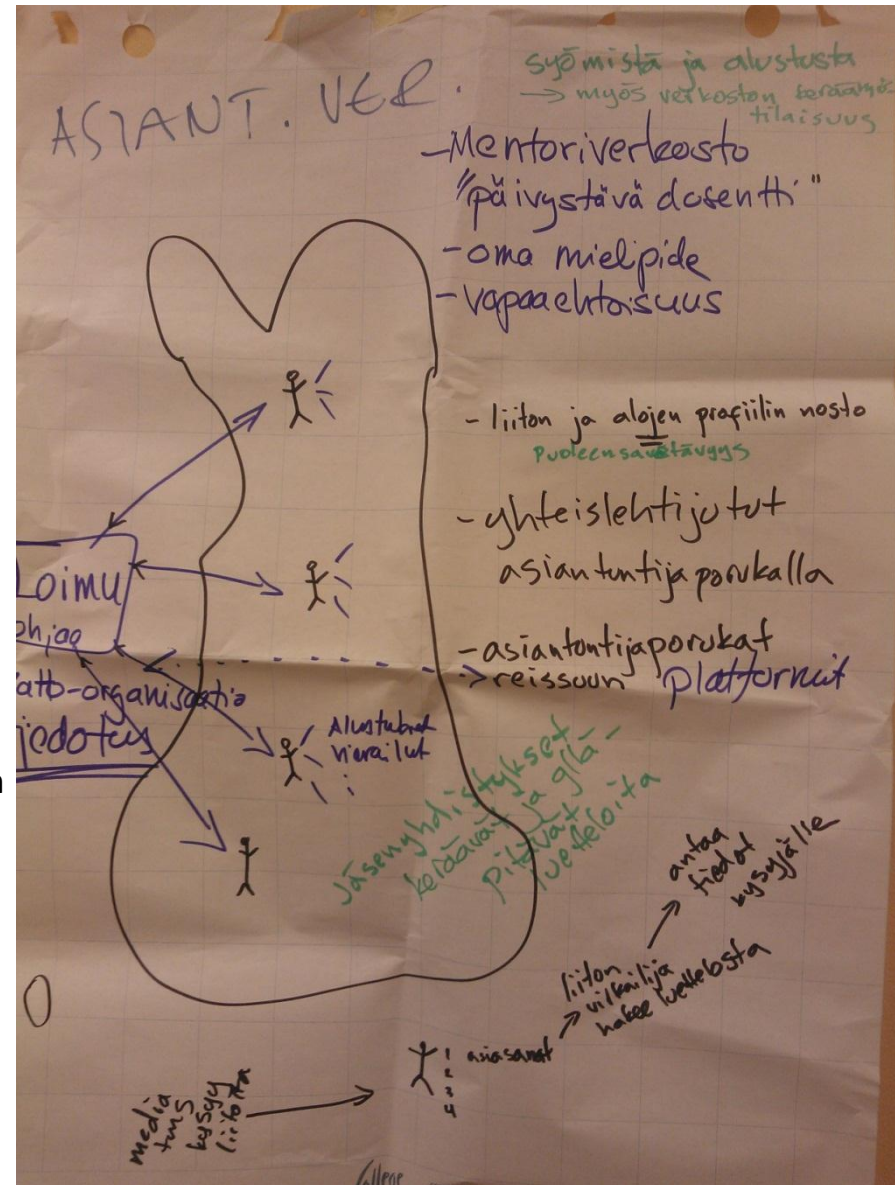 ASIANT. VER.
syömistä ja alustusta
→ myös verkoston keräämis
tilaisuus
- Mentoriverkosto
"päivystävä dosentti"
- oma mielipide
- vapaaehtoisuus
- liiton ja alojen profiilin nosto
puoleensavetävyys
- yhteislehtijutut
asiantuntijaporukalla
- asiantontijaporukat
→ reissuun platformit
Loimu
ohjaa
-organisaatio
iedotus
Alustukset
vierailut
jäsenyhdistykset
keräävät ja yllä-
pitävät
luetteloita
media
tms
kysyy
liitolta
1
2
3
4
asiasanat
liiton
hakee luettelosta
antaa
tiedot
kysyjälle